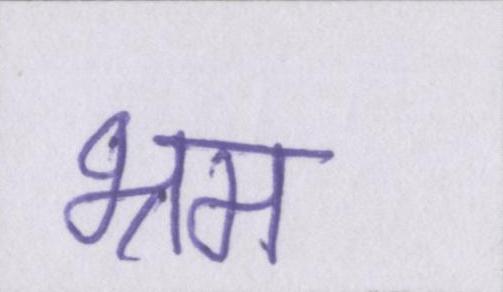 भ्रम